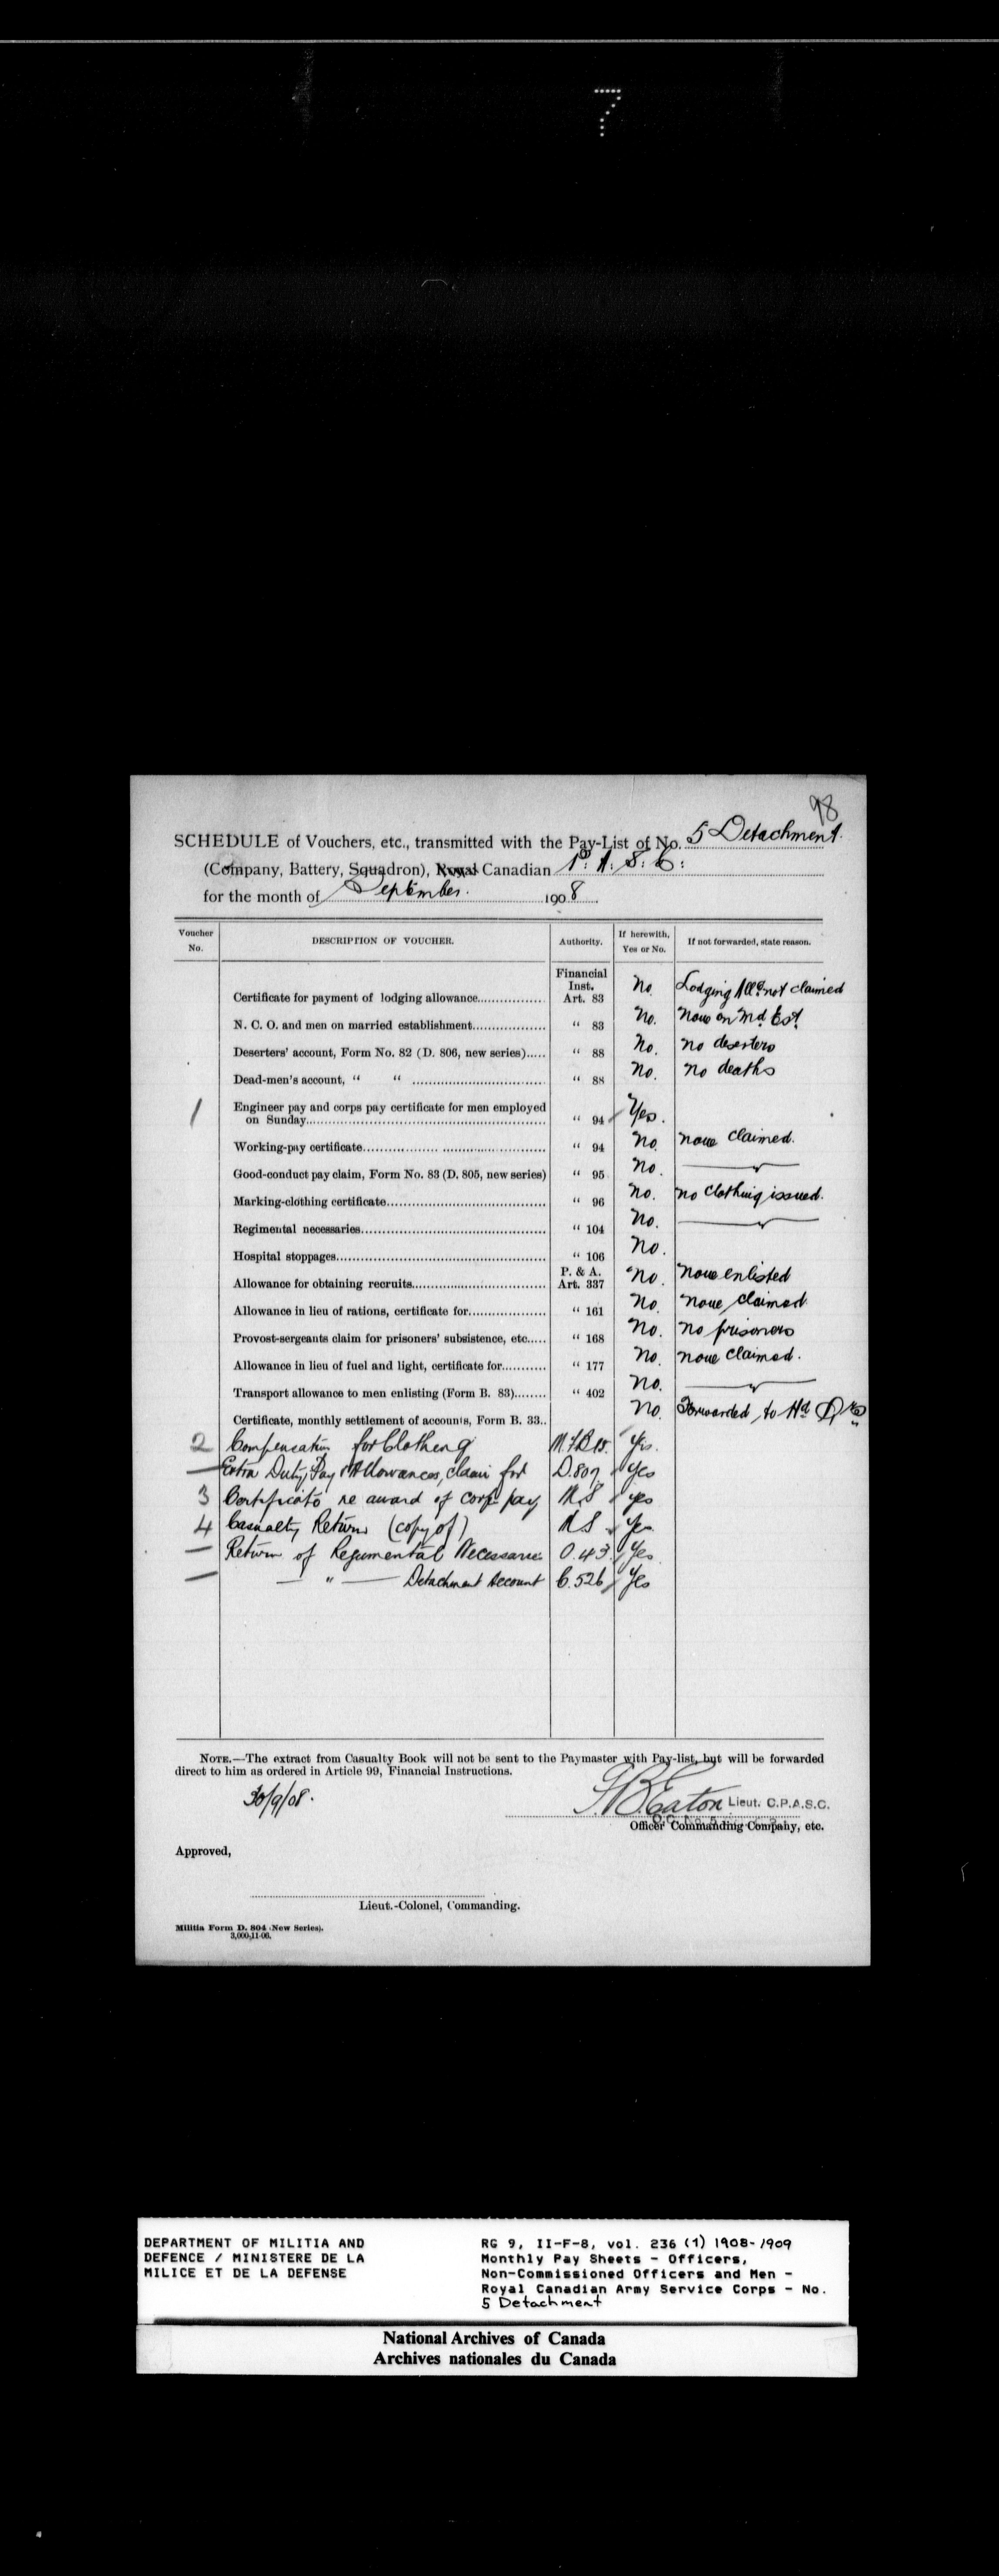 7
98
SCHEDULE of Vouchers, etc., transmitted with the Pay-List of No. 5 Detachment.
(Company, Battery, Squadron), Royal Canadian P. A. S. C.
for the month of September. 1908
Voucher No. DESCRIPTION OF VOUCHER. Authority. If herewith, Yes or No. If not forwarded, state reason.
Financial Inst.
Certificate for payment of lodging allowance Art. 83 No. Lodging Allce not claimed
N. C. O. and men on married establishment " 83 No. None on Md. Est.
Deserters' account, Form No. 82 (D. 806, new series) " 88 No. No deserters
Dead-men's account, " " " 88 No. No deaths
1 Engineer pay and corps pay certificate for men employed
on Sunday " 94 Yes.
Working-pay certificate " 94 No. None claimed.
Good-conduct pay claim, Form No. 83 (D. 805, new series) " 95 No.
Marking-clothing certificate " 96 No. No clothing issued.
Regimental necessaries " 104 No.
Hospital stoppages " 106 No.
P. & A.
Allowance for obtaining recruits Art. 337 No. None enlisted
Allowance in lieu of rations, certificate for " 161 No. None claimed
Provost-sergeants claim for prisoners' subsistence, etc. " 168 No. No prisoners
Allowance in lieu of fuel and light, certificate for " 177 No. None claimed.
Transport allowance to men enlisting (Form B. 83) " 402 No.
Certificate, monthly settlement of accounts, Form B. 33.. No. Forwarded to Hd Qrs
2 Compensation for Clothing Yes.
— Extra Duty Pay & Allowances, claim for D.807 Yes
3 Certificate re award of corps pay M.S. yes
4 Casualty Return (copy of) M.S. Yes
— Return of Regimental Necessaries O.43 Yes
— — " — Detachment Account C.526 Yes
NOTE.—The extract from Casualty Book will not be sent to the Paymaster with Pay-list, but will be forwarded
direct to him as ordered in Article 99, Financial Instructions.
30/9/08.
F. B. Eaton Lieut. C.P.A.S.C.
Officer Commanding Company, etc.
Approved,
Lieut.-Colonel, Commanding.
Militia Form D. 804 (New Series).
3,000-11-06.
DEPARTMENT OF MILITIA AND
DEFENCE / MINISTERE DE LA
MILICE ET DE LA DEFENSE
RG 9, II-F-8, vol. 236 (1) 1908-1909
Monthly Pay Sheets - Officers,
Non-Commissioned Officers and Men -
Royal Canadian Army Service Corps - No.
5 Detachment
National Archives of Canada
Archives nationales du Canada